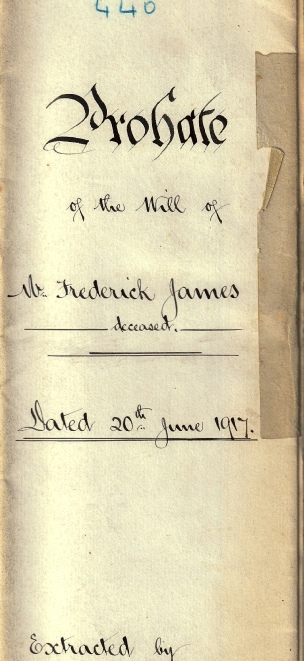 446
Probate
of the Will of
Mr. Frederick James
deceased.
Dated 20th June 1917.
Extracted by